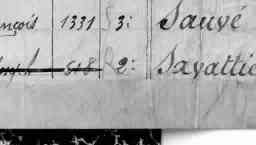 nçois 1331 S 3: Sauvé
518 R 2: Savattie